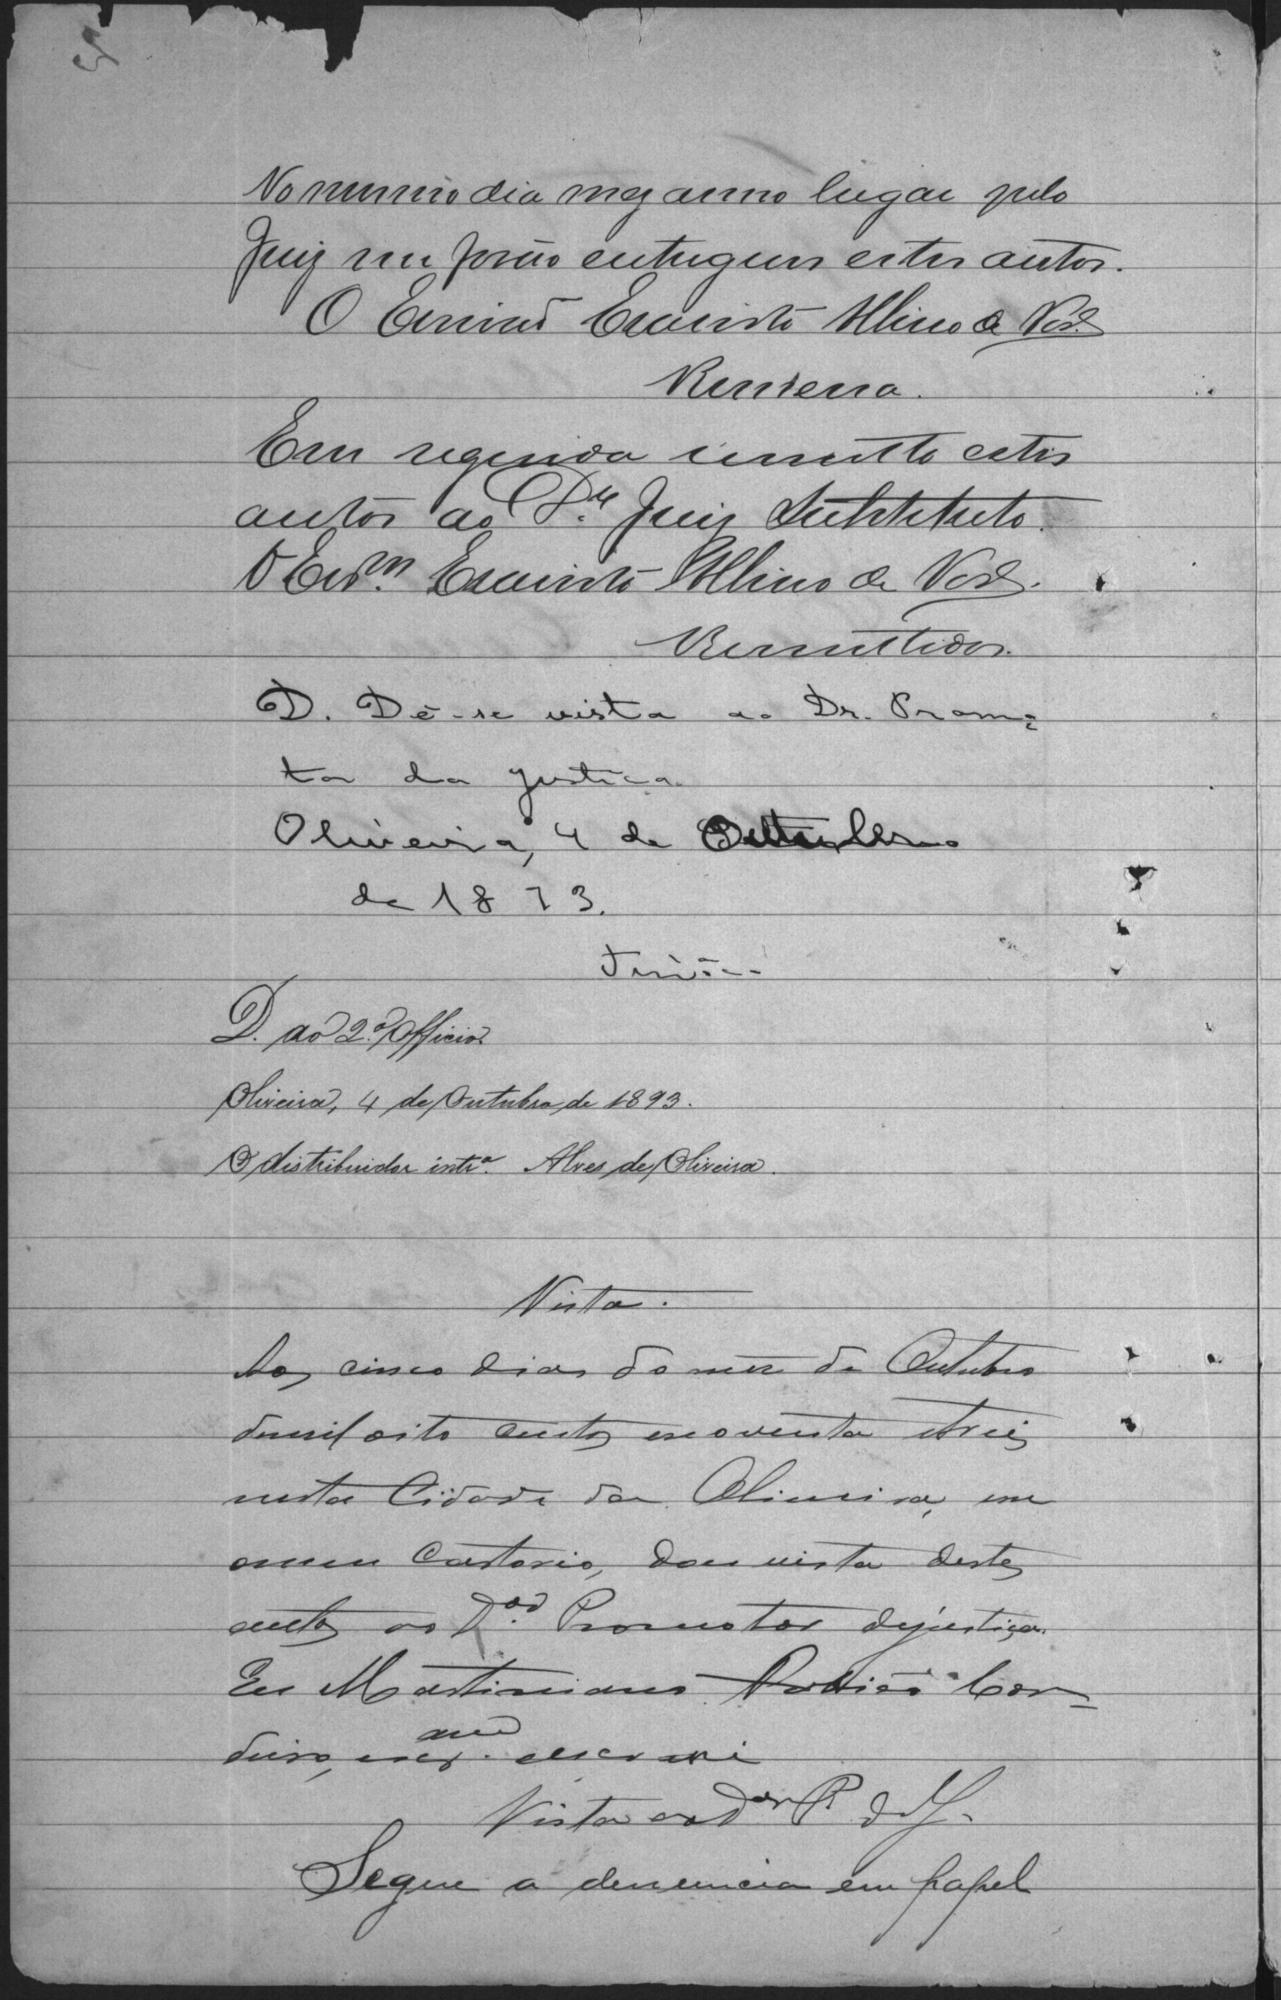 No mesmo dia mez anno lugar pelo
Juiz me forão entregues estes autos.
O Escrivão Evaristo Albino de
Remessa.
Em seguida remetto estes
autos ao Dr. Juiz Substituto.
O Escm. Evaristo Albino de
Remettidos.
D. Dê-se vista ao Dr. Promo-
tor da justiça.
Oliveira, 4 de Outubro
de 1893.
D. ao 2.º Officio.
Oliveira, 4 de Outubro de 1893.
O distribuidor intr.º Alves de Oliveira.
Vista.
Aos cinco dias do mez de Outubro
de mil oito centos e noventa e treis
nesta Cidade da Oliveira, em
o meu Cartorio, dou vista destes
autos ao Dor. Promotor de justiça.
Eu Martiniano Cor-
deiro, escram. escrevi
Vista ao Dor P. da J.
Segue a denuncia em papel